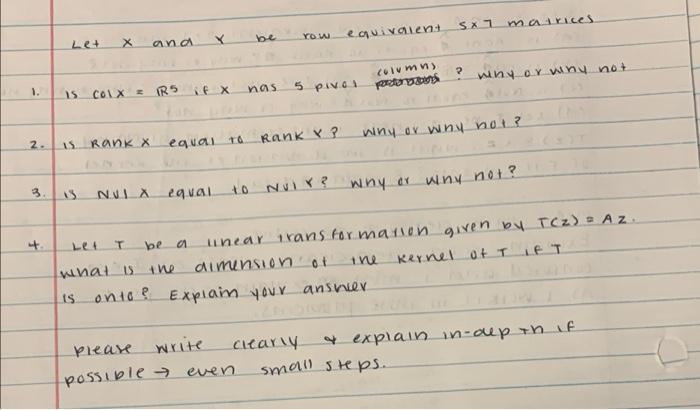 Let X and Y be row equivalent 5x7 matrices
columns
1. is Col X = R5 if X has 5 pivot ? Why or why not
2. is Rank X equal to Rank Y? Why or why not?
3. is Nul X equal to Nul Y? Why or why not?
4. Let T be a linear transformation given by T(z) = Az.
What is the dimension of the kernel of T if T
is onto? Explain your answer
please write clearly & explain in-depth if
possible → even small steps.